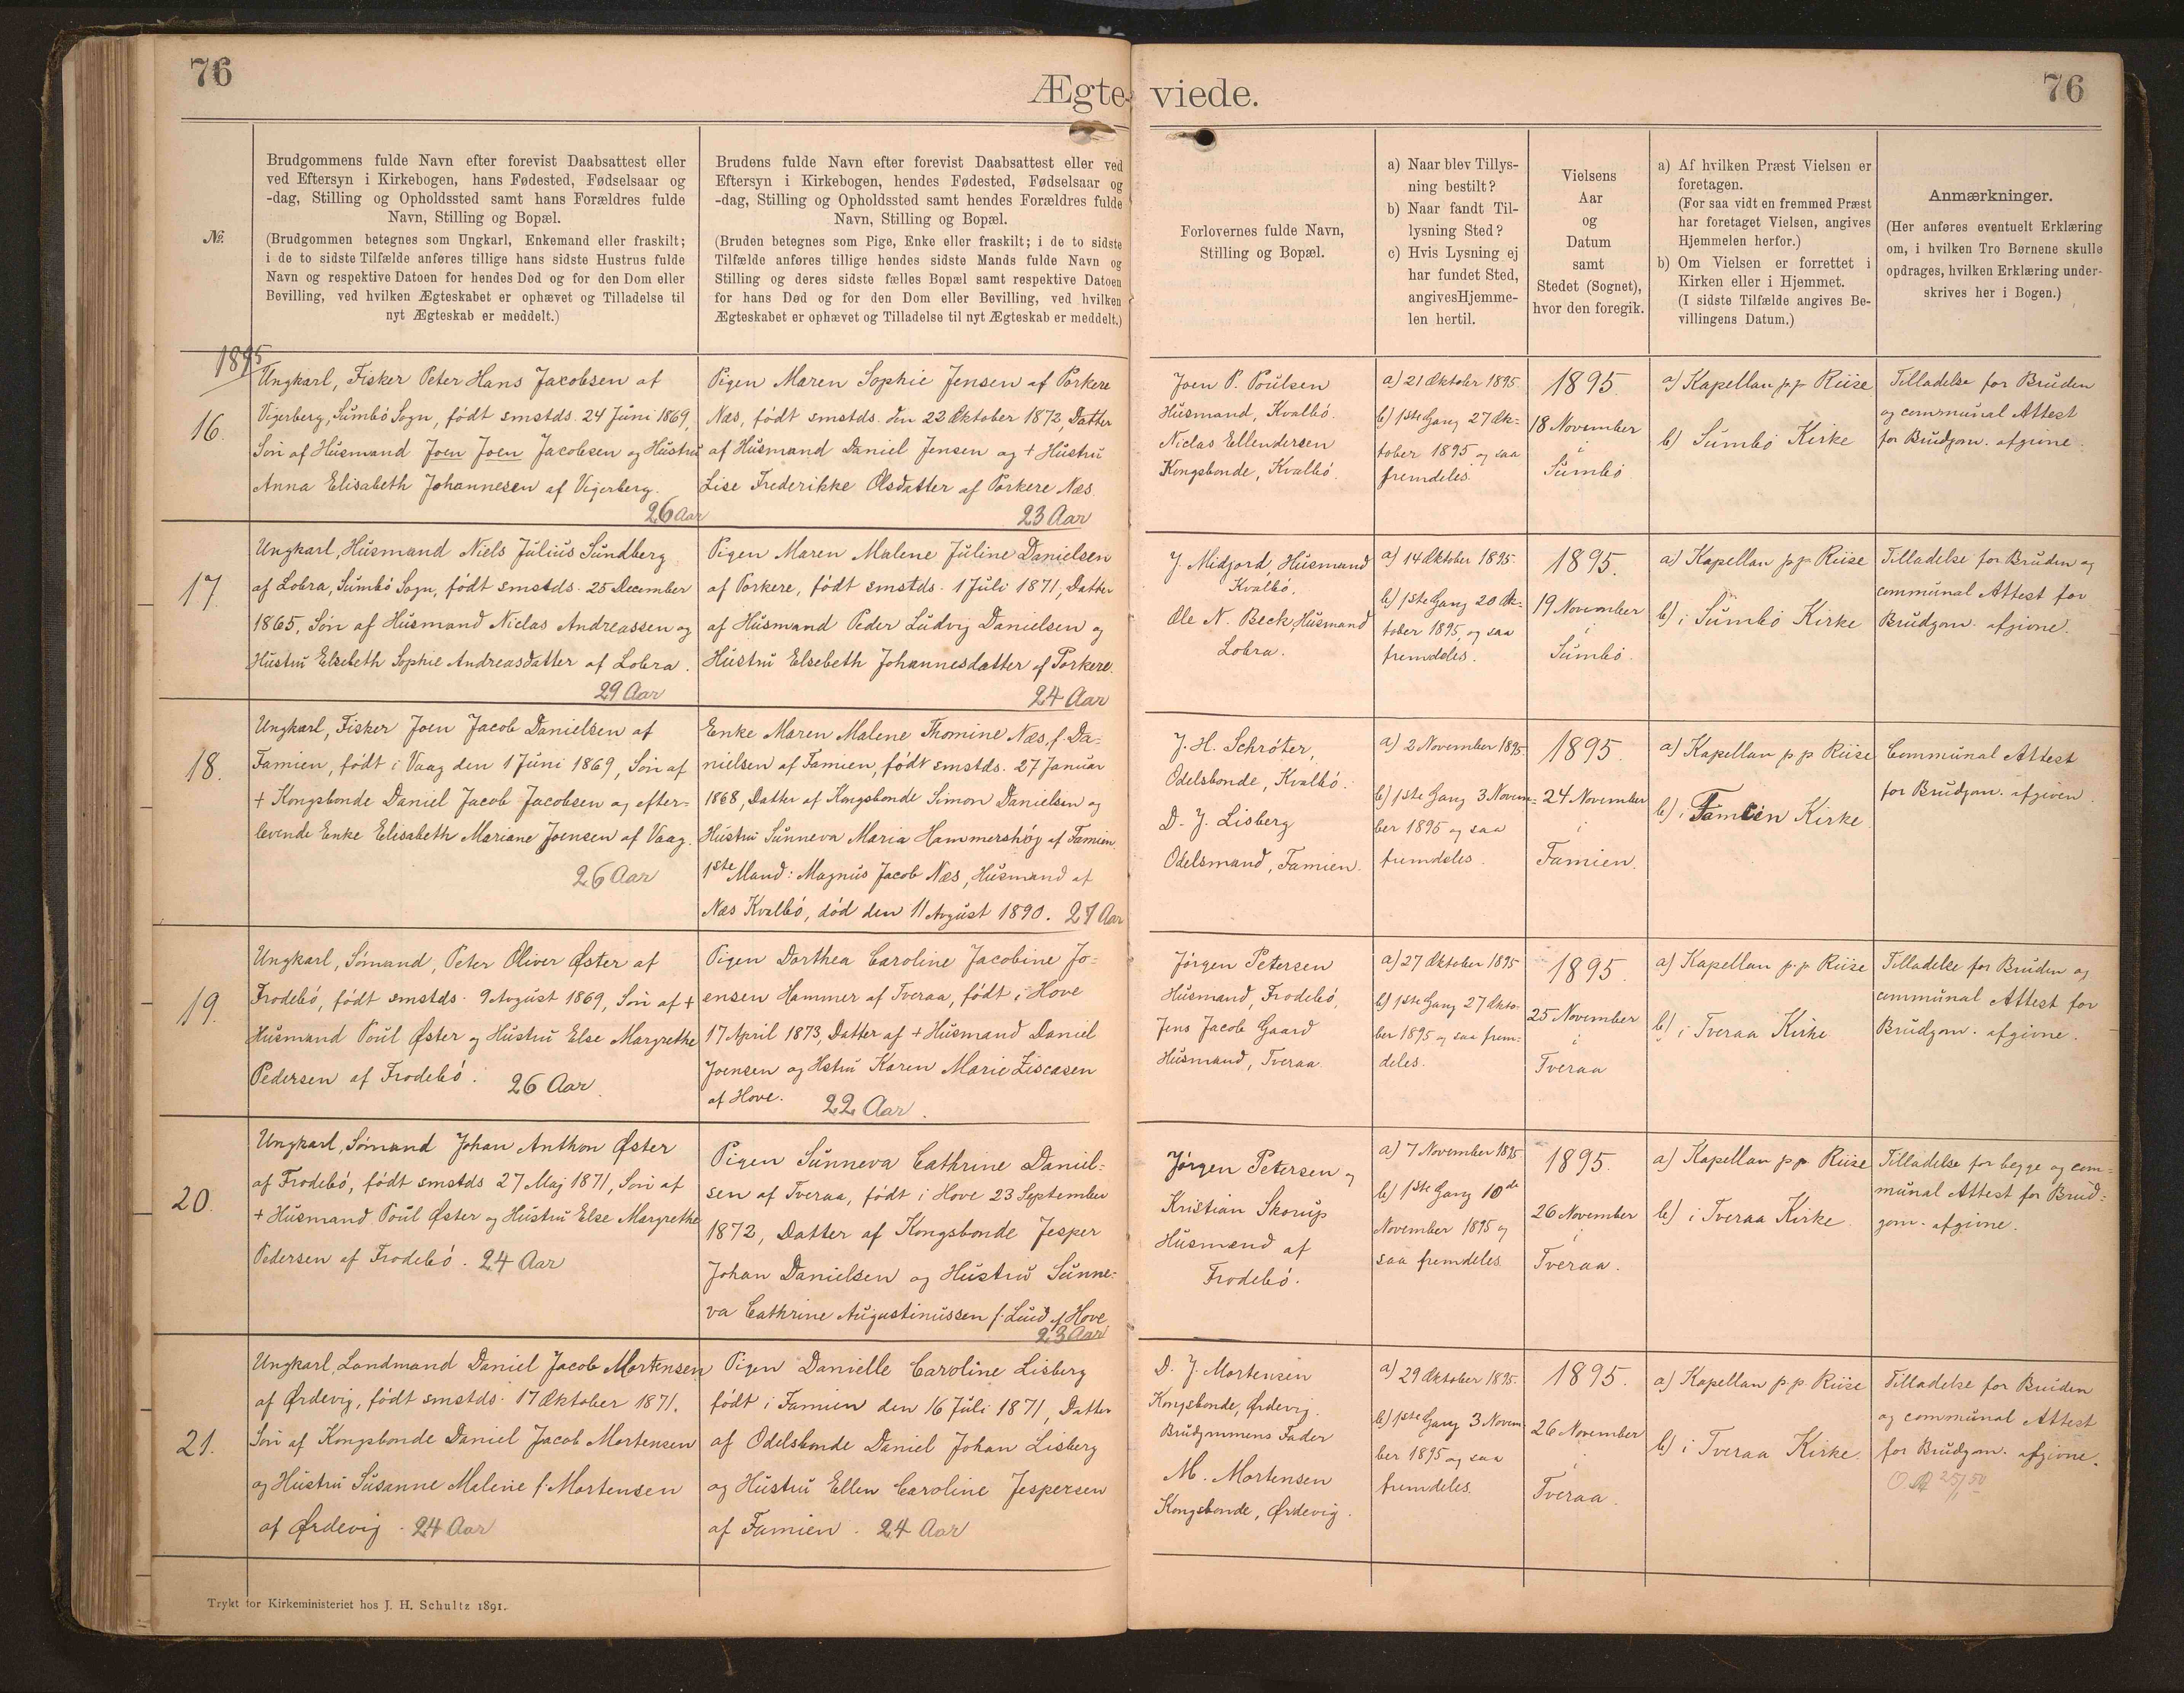 76
76
Ægteviede.
№.
Brudgommens fulde Navn efter forevist Daabsattest eller
ved Eftersyn i Kirkebogen, hans Fødested, Fødselsaar og
-dag, Stilling og Opholdssted samt hans Forældres fulde
Navn, Stilling og Bopæl.
(Brudgommen betegnes som Ungkarl, Enkemand eller fraskilt;
i de to sidste Tilfælde anføres tillige hans sidste Hustrus fulde
Navn og respektive Datoen for hendes Død og for den Dom eller
Bevilling, ved hvilken Ægteskabet er ophævet og Tilladelse til
nyt Ægteskab er meddelt.)
Brudens fulde Navn efter forevist Daabsattest eller ved
Eftersyn i Kirkebogen, hendes Fødested, Fødselsaar og
-dag, Stilling og Opholdssted samt hendes Forældres fulde
Navn, Stilling og Bopæl.
(Bruden betegnes som Pige, Enke eller fraskilt; i de to sidste
Tilfælde anføres tillige hendes sidste Mands fulde Navn og
Stilling og deres sidste fælles Bopæl samt respektive Datoen
for hans Død og for den Dom eller Bevilling, ved hvilken
Ægteskabet er ophævet og Tilladelse til nyt Ægteskab er meddelt.)
Forlovernes fulde Navn,
Stilling og Bopæl.
a) Naar blev Tillys-
ning bestilt?
b) Naar fandt Til-
lysning Sted?
c) Hvis Lysning ej
har fundet Sted,
angives Hjemme-
len hertil.
Vielsens
Aar
og
Datum
samt
Stedet (Sognet),
hvor den foregik.
a) Af hvilken Præst Vielsen er
foretagen.
(For saa vidt en fremmed Præst
har foretaget Vielsen, angives
Hjemmelen herfor.)
b) Om Vielsen er forrettet i
Kirken eller i Hjemmet.
(I sidste Tilfælde angives Be-
villingens Datum.)
Anmærkninger.
(Her anføres eventuelt Erklæring
om, i hvilken Tro Børnene skulle
opdrages, hvilken Erklæring under-
skrives her i Bogen.)
1895
16.
Ungkarl, Fisker Peter Hans Jacobsen af
Vigerberg, Sumbö Sogn, født smstds. 24 Juni 1869,
Søn af Husmand Joen Joen Jacobsen og Hustru
Anna Elisabeth Johannesen af Vigerberg.
26 Aar
Pigen Maren Sophie Jensen af Porkere
Næs, født smstds. den 22 Oktober 1872, Datter
af Husmand Daniel Jensen og + Hustru
Lise Frederikke Olsdatter af Porkere Næs.
23 Aar
Joen P. Poulsen
Husmand, Kvalbö.
Niclas Ellendersen
Kongsbonde, Kvalbö.
a) 21 Oktober 1895.
b) 1ste Gang 27 Ok-
tober 1895 og saa
fremdeles.
1895
18 November
i
Sumbö
a) Kapellan p. p. Riise
b) Sumbö Kirke
Tilladelse for Bruden
og communal Attest
for Brudgom. afgivne.
17.
Ungkarl, Husmand Niels Julius Sundberg
af Lobra, Sumbö Sogn, født smstds. 25 December
1865, Søn af Husmand Niclas Andreassen og
Hustru Elsebeth Sophie Andreasdatter af Lobra.
29 Aar
Pigen Maren Malene Juline Danielsen
af Porkere, født smstds. 1 Juli 1871, Datter
af Husmand Peder Ludvig Danielsen og
Hustru Elsebeth Johannesdatter af Porkere.
24 Aar
J. Midjord, Husmand
Kvalbö.
Ole N. Beck, Husmand
Lobra.
a) 14 Oktober 1895.
b) 1ste Gang 20 Ok-
tober 1895, og saa
fremdeles.
1895.
19 November
i
Sumbö.
a) Kapellan p p Riise
b) i Sumbö Kirke
Tilladelse for Bruden og
communal Attest for
Brudgom. afgivne.
18.
Ungkarl, Fisker Joen Jacob Danielsen af
Famien, født i Vaag den 1 Juni 1869, Søn af
+ Kongsbonde Daniel Jacob Jacobsen og efter-
levende Enke Elisabeth Mariane Joensen af Vaag.
26 Aar
Enke Maren Malene Thomine Næs, f. Da-
nielsen af Famien, født smstds. 27 Januar
1868, Datter af Kongsbonde Simon Danielsen og
Hustru Sunneva Maria Hammershøj af Famien
1ste Mand: Magnus Jacob Næs, Husmand af
Næs Kvalbö, död den 11 August 1890. 27 Aar
J. H. Schröter,
Odelsbonde, Kvalbö.
D. J. Lisberg
Odelsmand, Famien.
a) 2 November 1895
b) 1ste Gang 3 Novem-
ber 1895 og saa
fremdeles.
1895.
24 November
i
Famien.
a) Kapellan p p Riise
b) i Famien Kirke
Communal Attest
for Brudgom. afgiven.
19.
Ungkarl, Sømand, Peter Oliver Øster af
Frodebö, født smstds. 9 August 1869, Søn af +
Husmand Poul Øster og Hustru Else Margrethe
Pedersen af Frodebö. 26 Aar.
Pigen Dorthea Caroline Jacobine Jo-
ensen Hammer af Tveraa, født i Hove
17 April 1873, Datter af + Husmand Daniel
Joensen og Hstru Karen Marie Liscasen
af Hove. 22 Aar.
Jörgen Petersen
Husmand, Frodebö.
Jens Jacob Gaard
Husmand, Tveraa
a) 27 Oktober 1895
b) 1ste Gang 27 Okto-
ber 1895 og saa frem-
deles.
1895.
25 November
i
Tveraa
a) Kapellan p. p. Riise
b) i Tveraa Kirke
Tilladelse for Bruden og
communal Attest for
Brudgom. afgivne.
20.
Ungkarl, Sømand Johan Anthon Øster
af Frodebö, født smstds 27 Maj 1871, Søn af
+ Husmand Poul Øster og Hustru Else Margrethe
Pedersen af Frodebö. 24 Aar
Pigen Sunneva Cathrine Daniel-
sen af Tveraa, født i Hove 23 September
1872, Datter af Kongsbonde Jesper
Johan Danielsen og Hustru Sunne-
va Cathrine Augustinussen f. Luid af Hove
23 Aar
Jörgen Petersen og
Kristian Skorup
Husmænd af
Frodebö.
a) 7 November 1895
b) 1ste Gang 10de
November 1895 og
saa fremdeles.
1895.
26 November
i
Tveraa.
a) Kapellan p p Riise
b) i Tveraa Kirke
Tilladelse for begge og com-
munal Attest for Brud-
gom. afgivne.
21.
Ungkarl, Landmand Daniel Jacob Mortensen
af Ördevig, født smstds. 17 Oktober 1871.
Søn af Kongsbonde Daniel Jacob Mortensen
og Hustru Susanne Malene f. Mortensen
af Ördevig. 24 Aar
Pigen Danielle Caroline Lisberg
født i Famien den 16 Juli 1871, Datter
af Odelsbonde Daniel Johan Lisberg
og Hustru Ellen Caroline Jespersen
af Famien. 24 Aar
D. J. Mortensen
Kongsbonde, Ördevig.
Brudgommens Fader
M. Mortensen
Kongsbonde, Ördevig.
a) 29 Oktober 1895.
b) 1ste Gang 3 Novem-
ber 1895 og saa
fremdeles.
1895.
26 November
i
Tveraa.
a) Kapellan p p Riise
b) i Tveraa Kirke.
Tilladelse for Bruden
og communal Attest
for Brudgom. afgivne.
Trykt for Kirkeministeriet hos J. H. Schultz 1891.